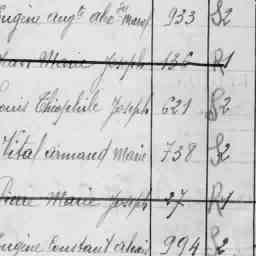 Eugène Aug^te 933 S2
Jean Marie Joseph 136 R1
Louis Théophile Joseph 621 S2
Vital Armand Marie 738 S2
Pierre Marie Joseph 27 R1
Eugène Constant 994 S2